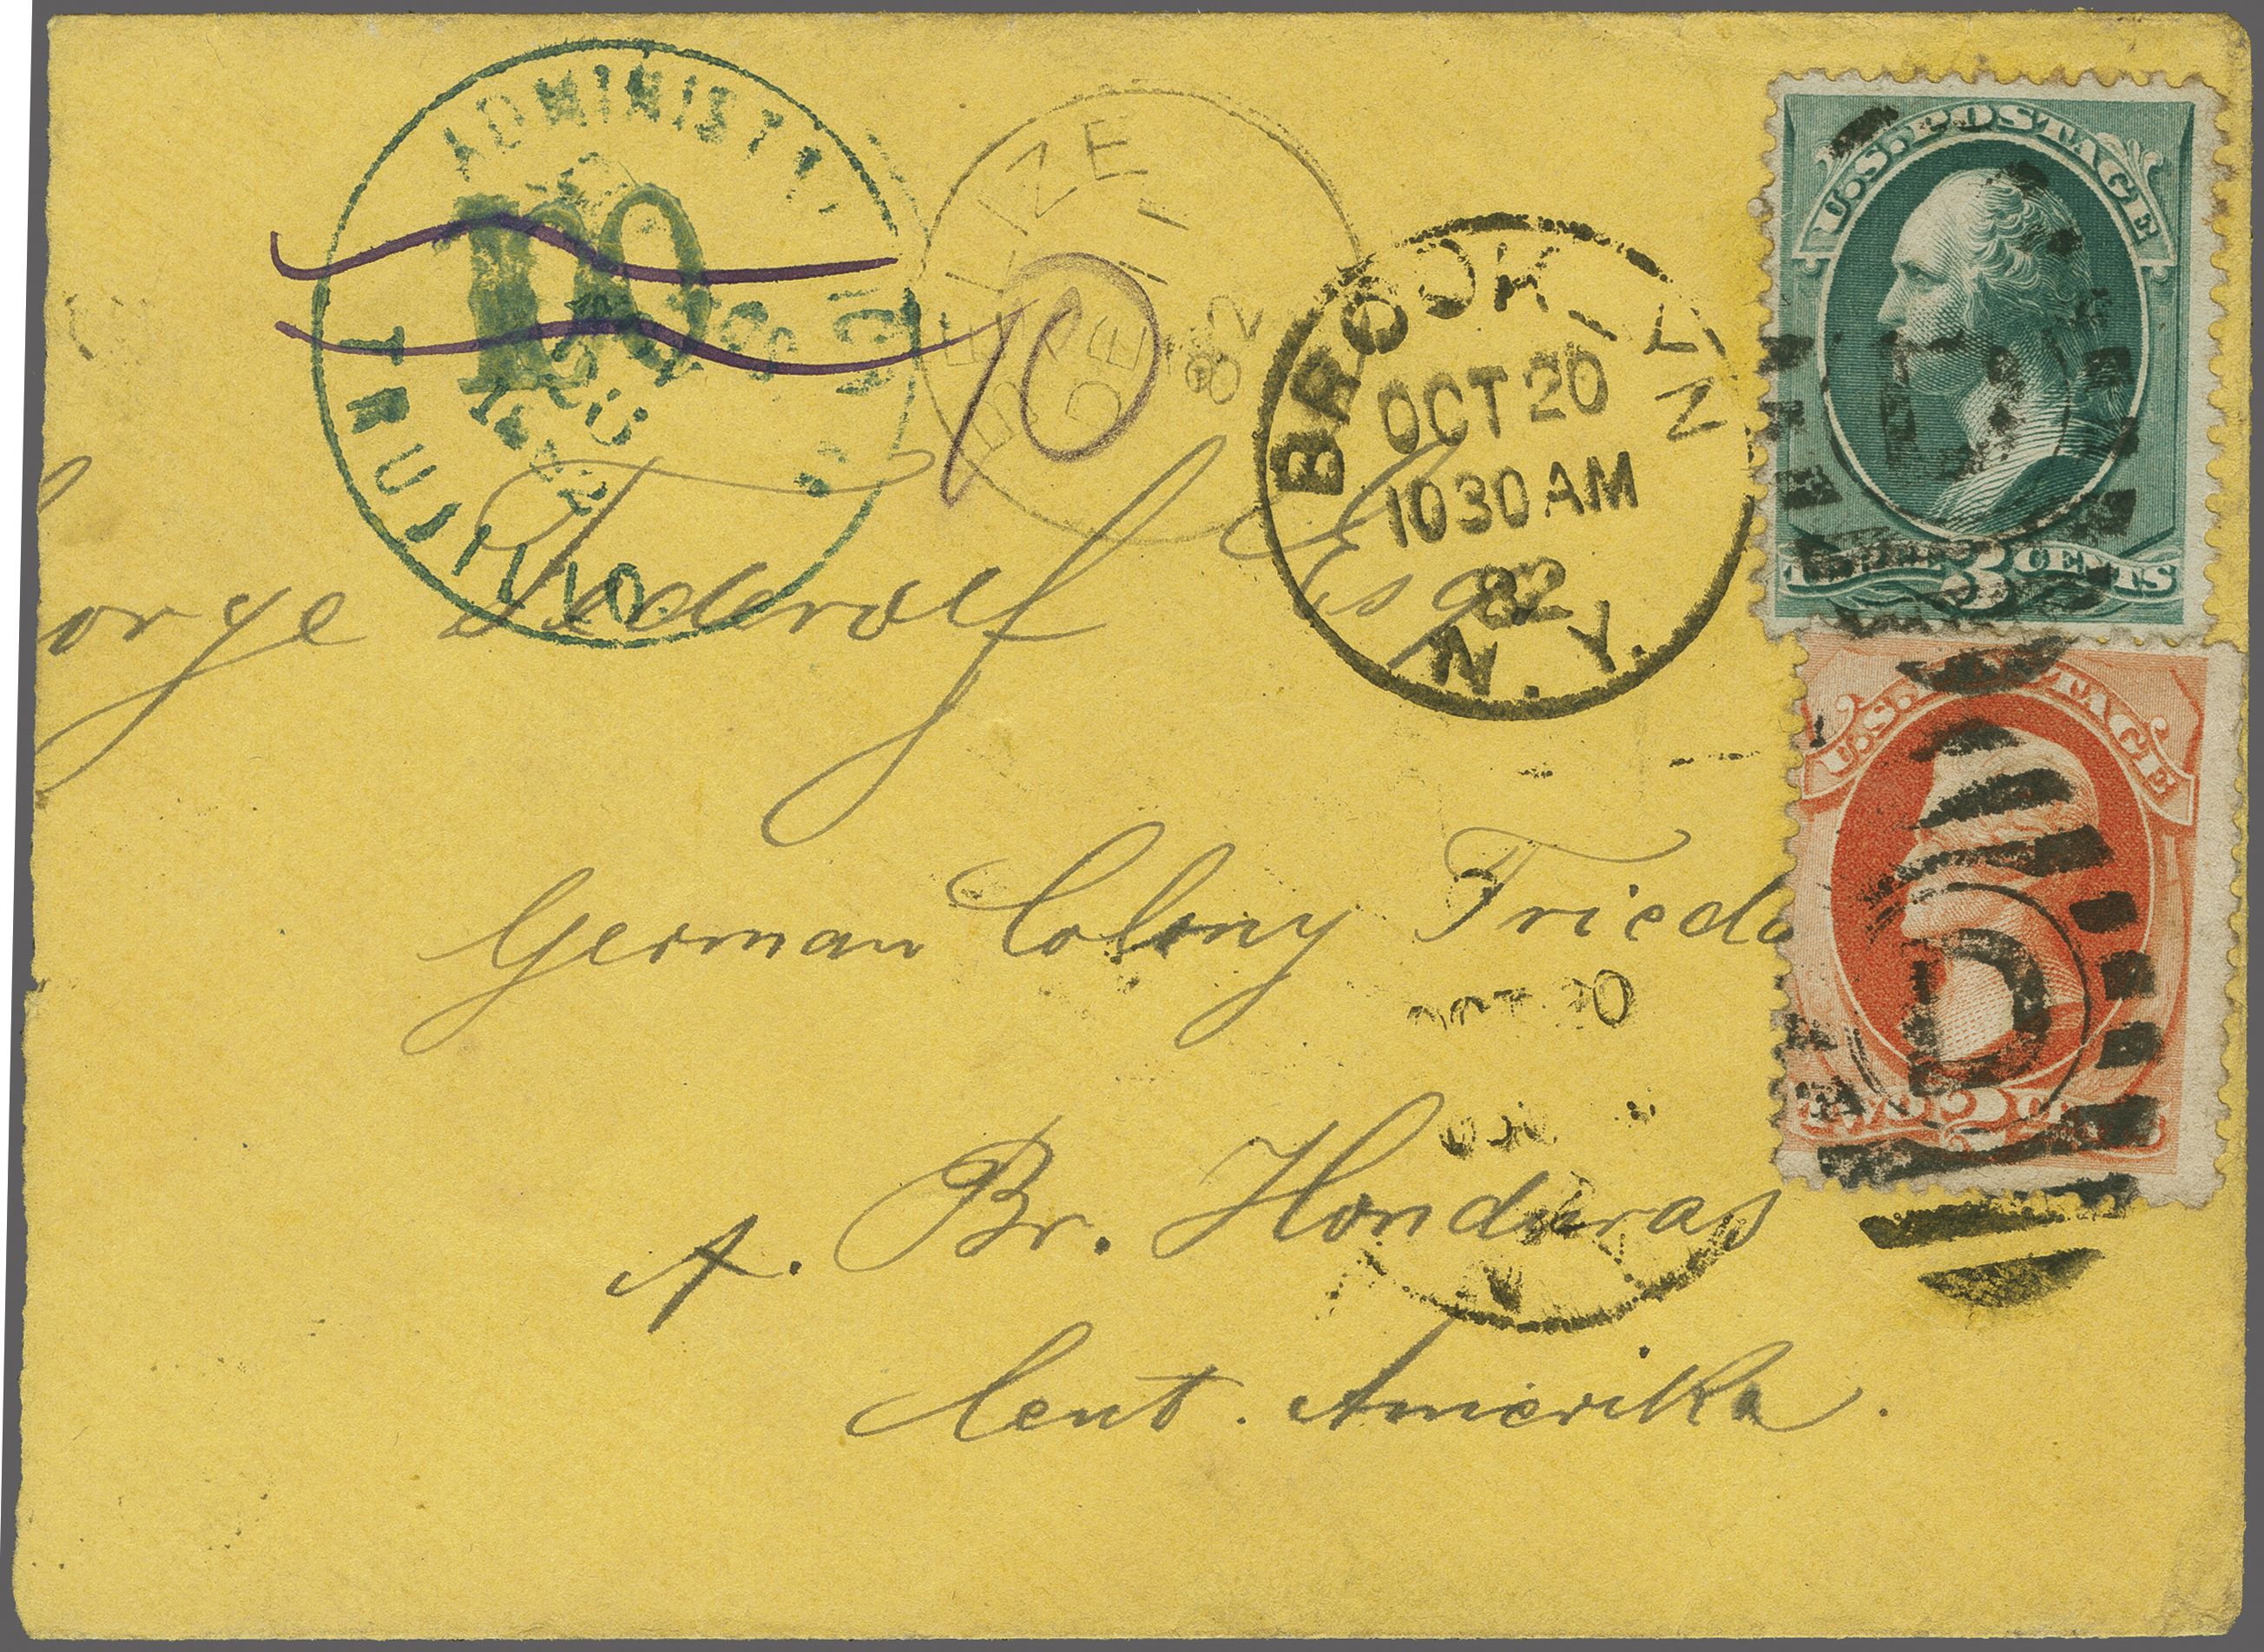 ADMINIST
TRUJILLO.
10
BELIZE
DE 11
82
10
BROOKLYN
OCT 20
10 30 AM
82
N. Y.
U.S. POSTAGE
THREE 3 CENTS
U.S. POSTAGE
TWO 2 CENTS
D
orge Esq
German Colony Frieda
OCT 20
A. Br. Honduras
Cent. Amerika.